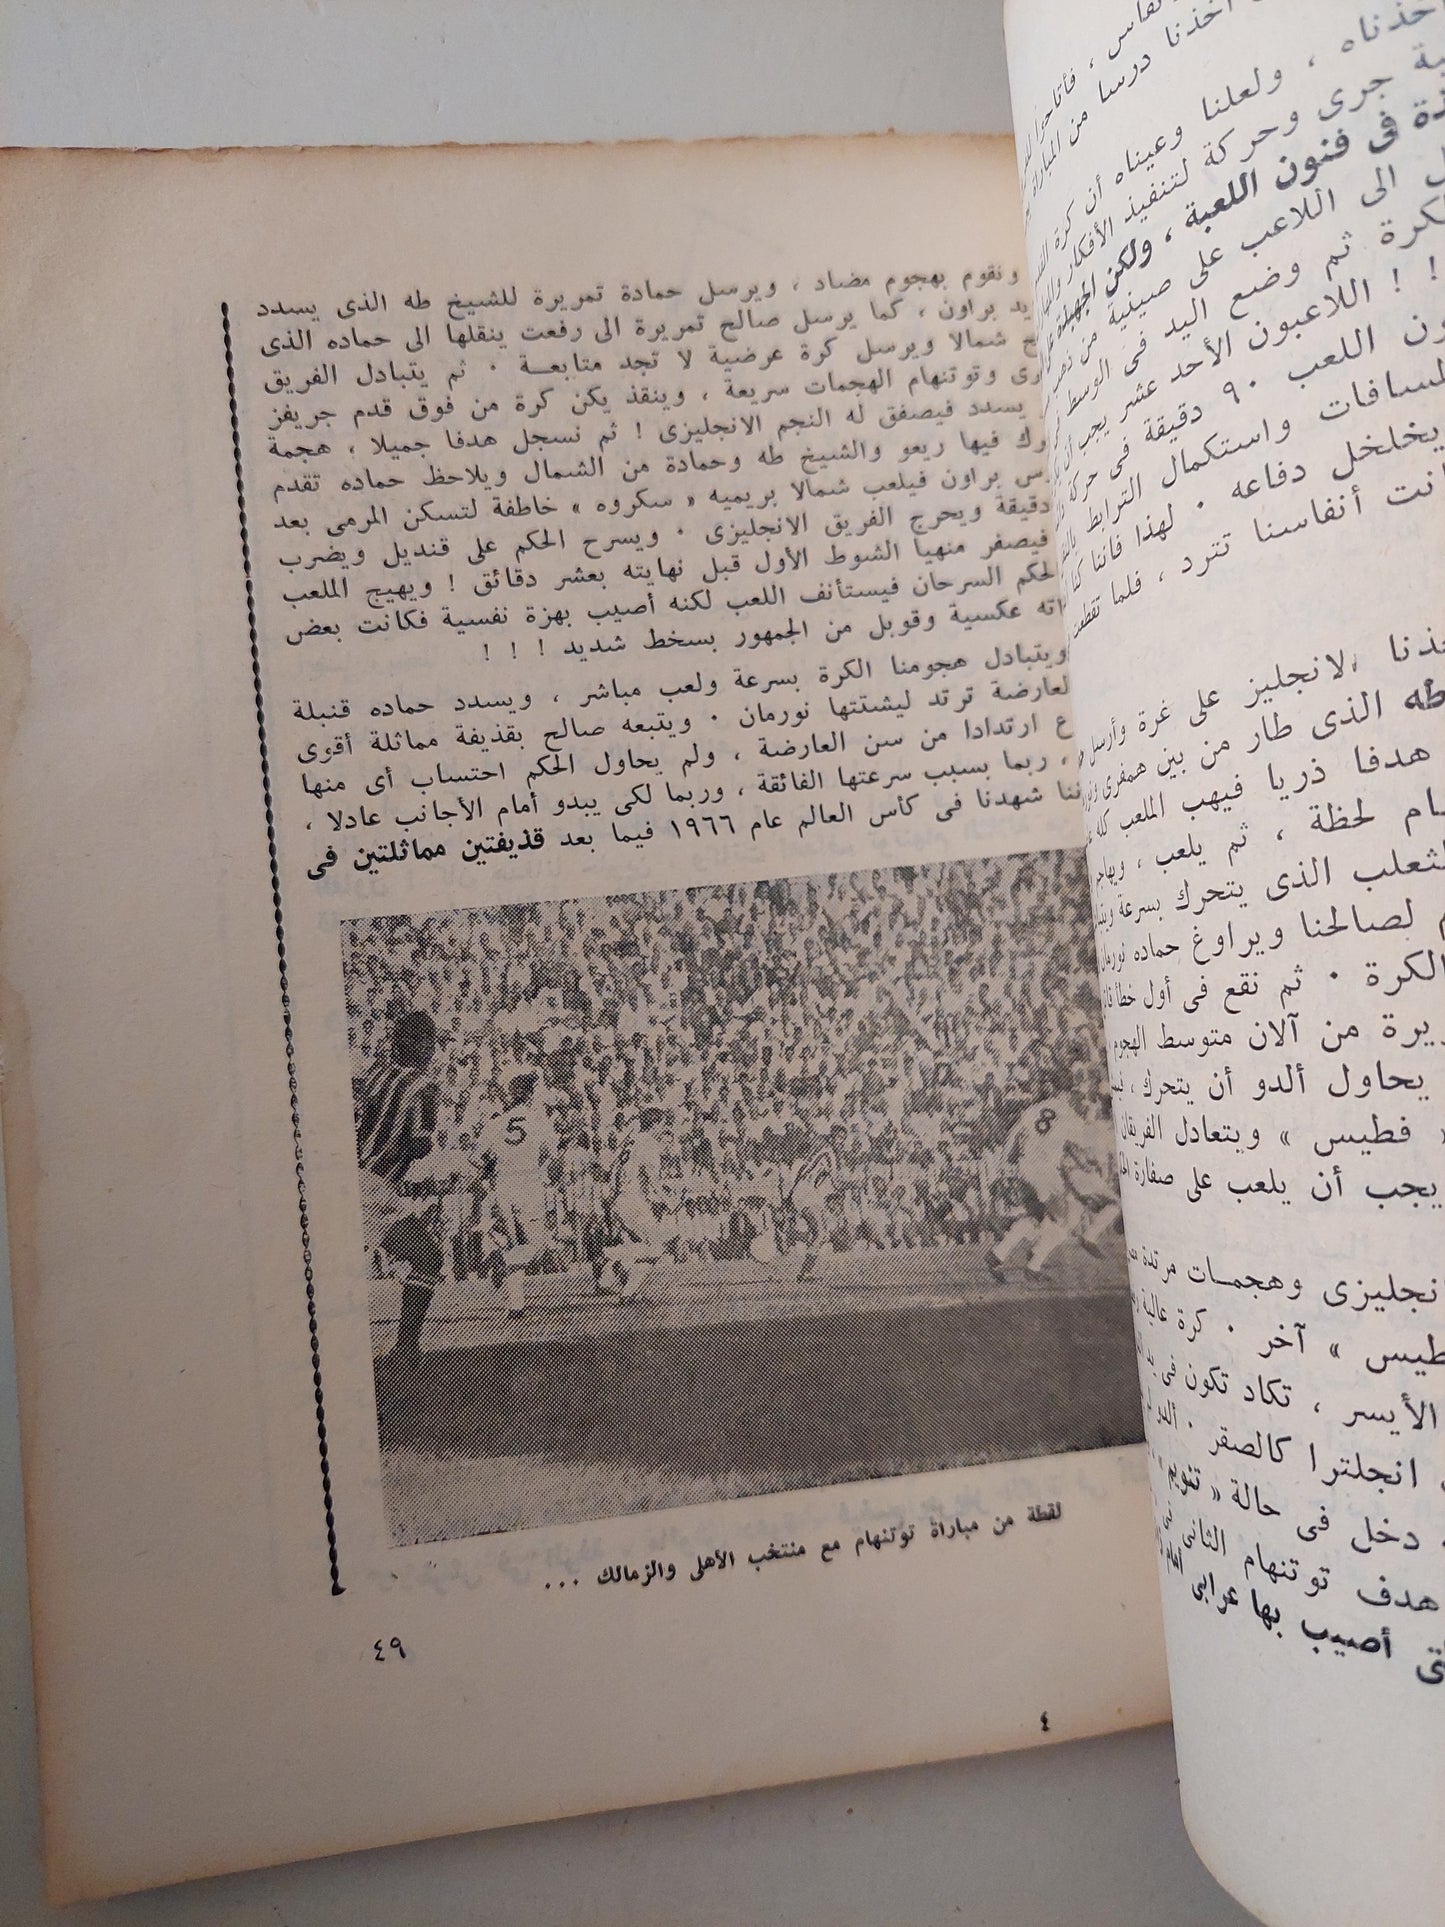 ونقوم بهجوم مضاد ، ويرسل حمادة تمريرة للشيخ طه الذى يسدد
يد براون ، كما يرسل صالح تمريرة الى رفعت ينقلها الى حماده الذى
شمالا ويرسل كرة عرضية لا تجد متابعــة . ثم يتبادل الفريق
رى وتوتنهام الهجمات سريعة ، وينقذ يكن كرة من فوق قدم جريفز
يسدد فيصفق له النجم الانجليزى ! ثم نسجل هدفا جميلا ، هجمة
رك فيها ريعو والشيخ طه وحمادة من الشمال ويلاحظ حماده تقدم
س براون فيلعب شمالا بريميه « سكروه » خاطفة لتسكن المرمى بعد
دقيقة ويحرج الفريق الانجليزى . ويسرح الحكم على قنديل ويضرب
فيصفر منهيا الشوط الأول قبل نهايته بعشر دقائق ! ويهيج الملعب
لحكم السرحان فيستأنف اللعب لكنه أصيب بهزة نفسية فكانت بعض
اته عكسية وقوبل من الجمهور بسخط شديد ! ! !
ويتبادل هجومنا الكرة بسرعة ولعب مباشر ، ويسدد حماده قنبلة
لعارضة ترتد ليشتتها نورمان . ويتبعه صالح بقذيفة مماثلة أقوى
ع ارتدادا من سن العارضة ، ولم يحاول الحكم احتساب أى منها
، ربما بسبب سرعتها الفائقة ، وربما لكى يبدو أمام الأجانب عادلا ،
ننا شهدنا فى كأس العالم عام ١٩٦٦ فيما بعد قذيفتين مماثلتين فى
5
8
لقطة من مباراة توتنهام مع منتخب الأهلى والزمالك ...
٤٩
٤
أخذنا درسا من المباراة
خذناه ، ولعلنا وعيناه أن كرة
ية جرى وحركة لتنفيذ الأفكار
ذة فى فنون اللعبة ، ولكن
ل الى اللاعب على صينية من
لكرة ثم وضع اليد فى الوسط
! ! اللاعبون الأحد عشر يجب أن
ون اللعب ٩٠ دقيقة فى حركة
لمسافات واستكمال الترابط
يخلخل دفاعه . لهذا فاننا كنا
انت أنفاسنا تتردد ، فلما تقطعت
خذنا الانجليز على غرة وأرسل
طه الذى طار من بين همفرى
هدفا ذريا فيهب الملعب كله
ـام لحظة ، ثم يلعب ، ويهاجم
لثعلب الذى يتحرك بسرعة
م لصالحنا ويراوغ حماده نورمان
الكرة . ثم نقع فى أول خطأ
ريرة من آلان متوسط الهجوم
يحاول ألدو أن يتحرك ،
« فطيس » ويتعادل الفريقان
يجب أن يلعب على صفارة
نجليزى وهجمــات مرتدة
طيس » آخر . كرة عالية
الأيسر ، تكاد تكون فى
انجلترا كالصقر . ألدو
دخل فى حالة « تنويم »
هدف توتنهام الثانى
تى أصيب بها عرابى أمام